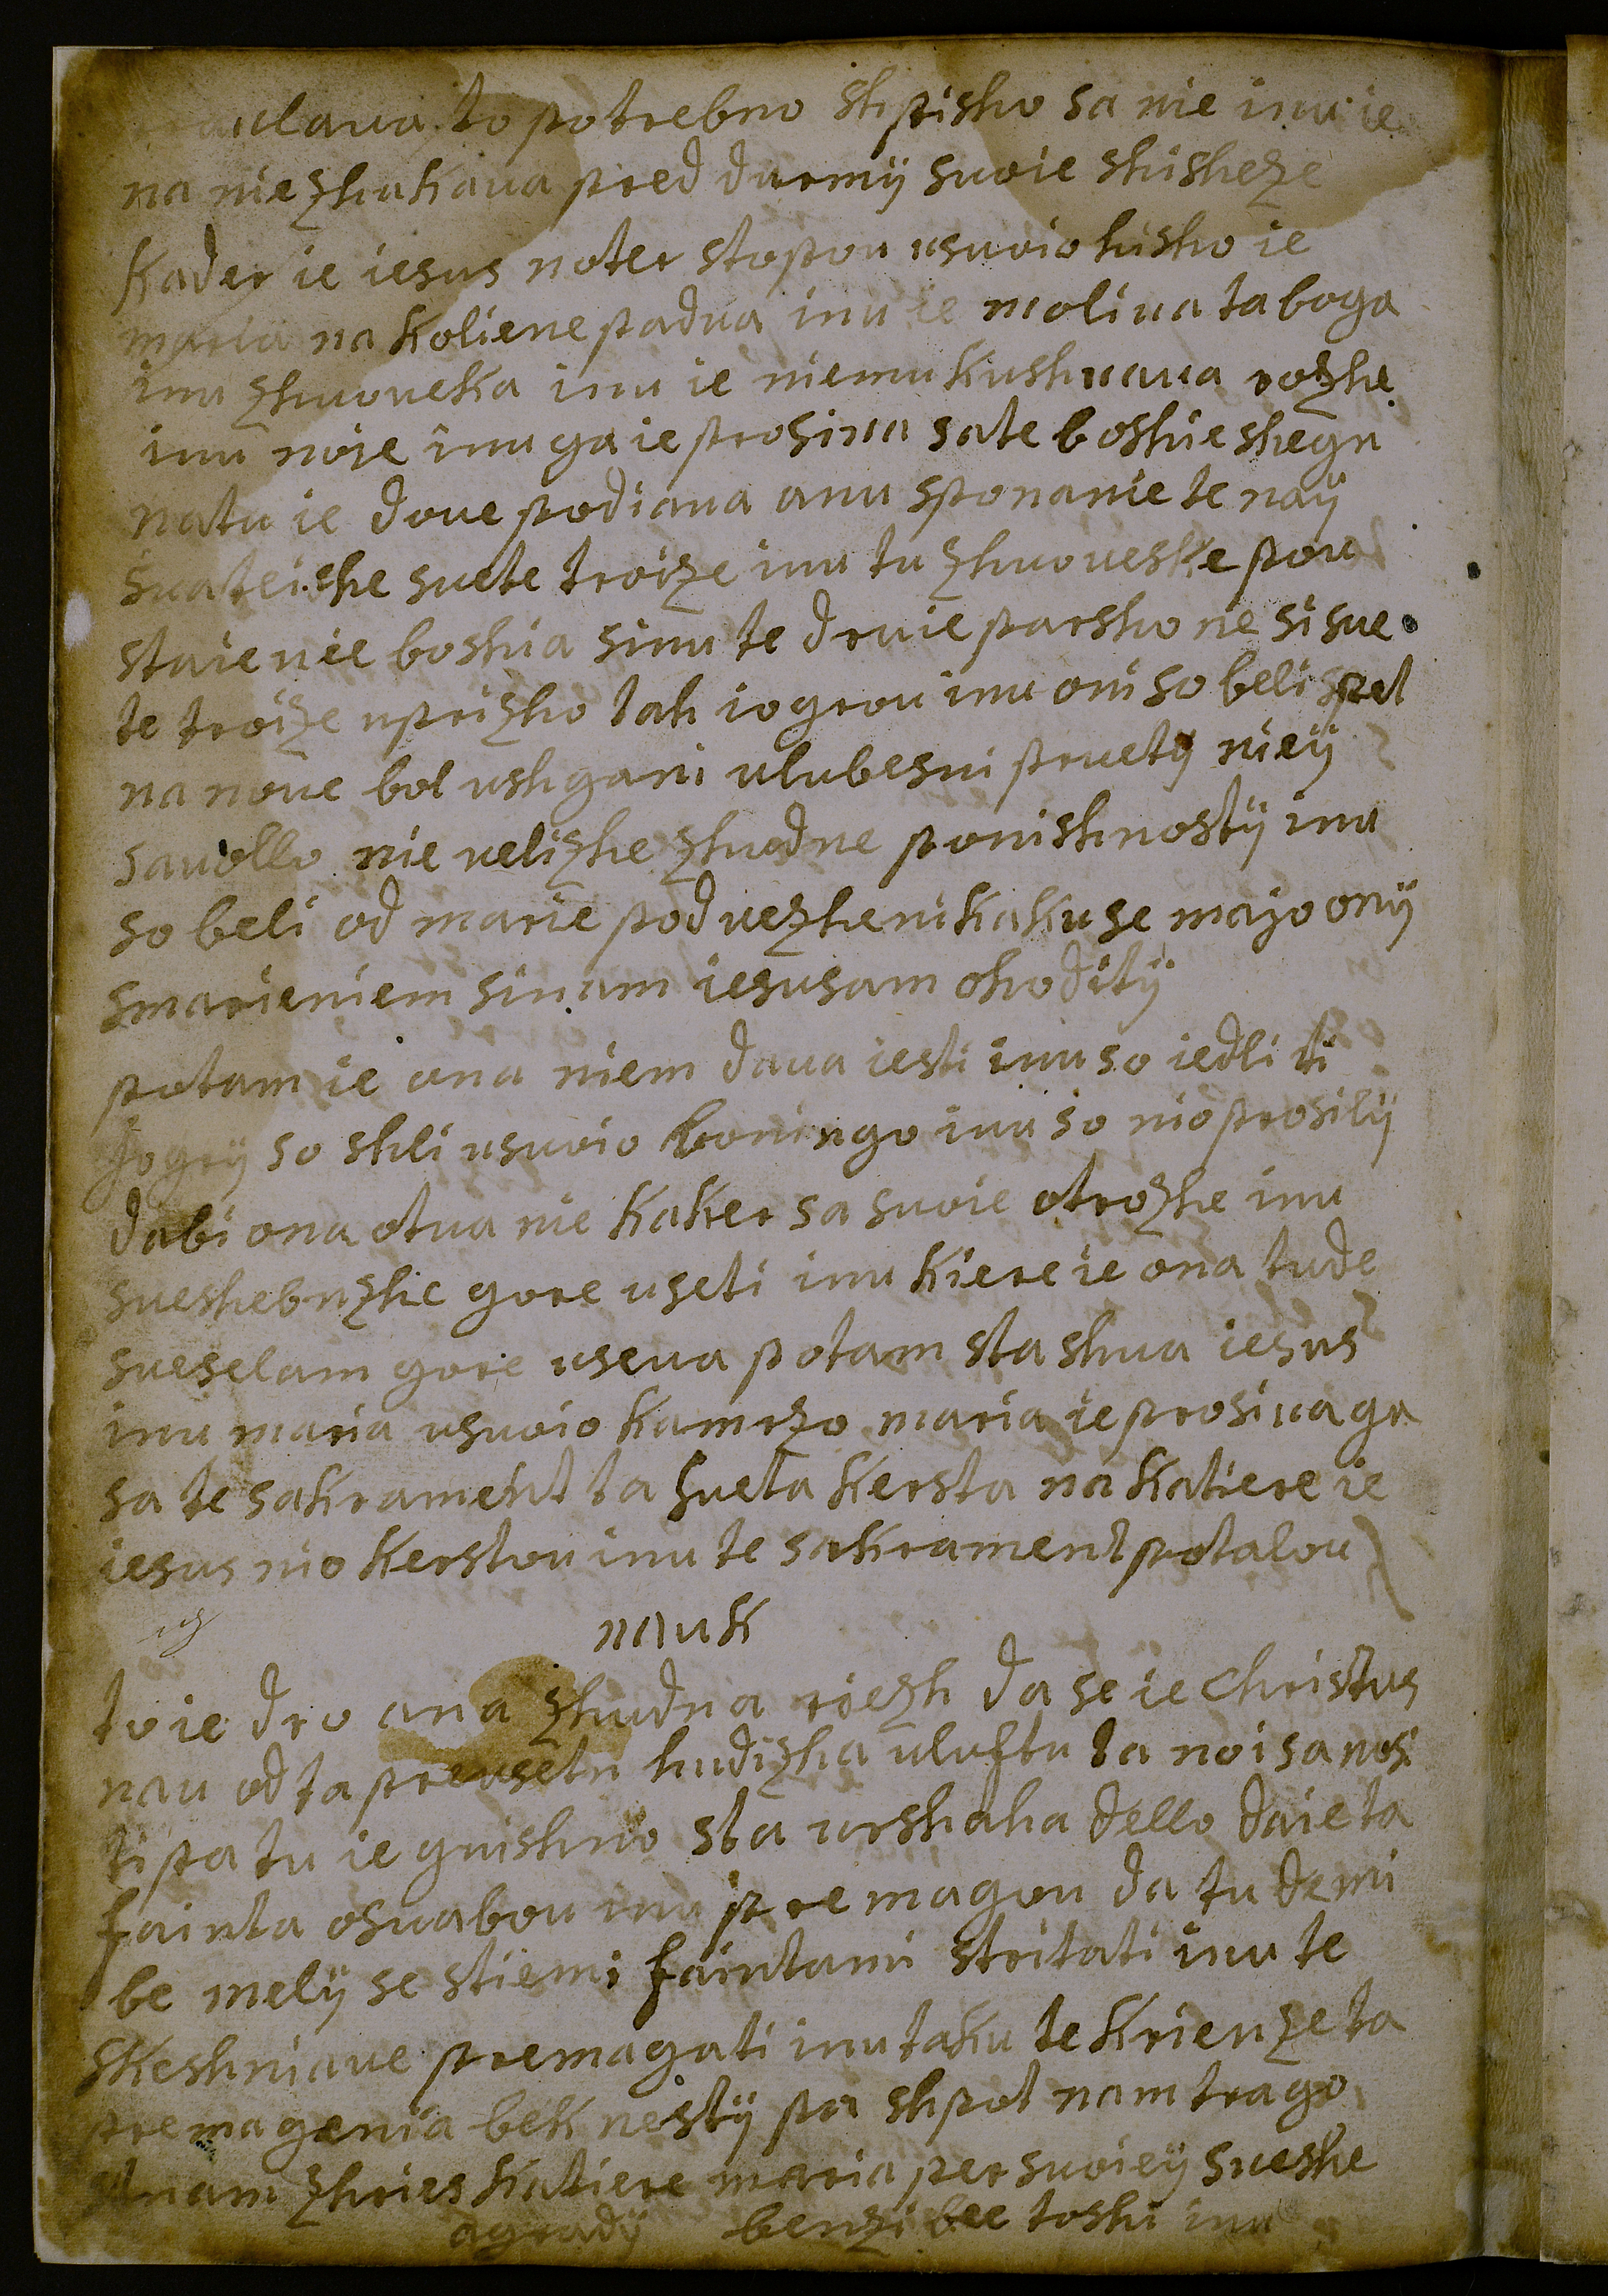 ulaua to potrebno shpisho sa nie inu ie
na nie zhakaua pred durmÿ suoie shisheze
Kader ie iesus noter stopou usuoio hisho ie
maria na Koliene padua inu ie moliua ta boga
inu zhuoueka inu ie niemu Kushuaua rozhe
inu noie inu ga ie prosiua sa te boshie shegn
natu ie doue podiaua anu sponanie te naÿ
suateishe suete troize inu tu zhuoueske pou
staienie boshia sinu te druie parsho ne si sue
te troize uprizho tah iogrou inu oni so beli spet
na noue bol ushgani ulubesni pruety nieÿ
sauollo nie uelizhe zhudne ponishnostÿ inu
so beli od marie poduezheni kaku se majo onÿ
smarieniem sinam iesusam ohoditÿ
potam ie ona niem daua iesti inu so iedli ti
JogrÿV so shli usuoio boningo inu so nio prosilÿ
dabi ona otua nie Kaker sa suoie otrozhe inu
sueshebnzhe gore useti inu Kiere ie ona tude
sueselam gore useua potam sta shua iesus
inu maria usuoio Kamrzo maria ie prosiua ga
sa te sakrament ta sueta Kersta na Katiere ie
iesus nio Kerstou inu te sakrament potalou
nauk
to ie dro ana zhudna riezh da se ie Christus
nau od ta preusetn hudizha uluftu ta noi sa nosi
ti pa tu ie guishno sta urshaha dello da ie ta
fainta osuabou inu premagou da tudemi
be melÿ se stiemi faintami stritati inu te
skeshniaue premagati inu taku te Krienze ta
premagenia bek nestÿ pa shpot nam trago
nam zhries Katiere maria per suoieÿ sueshe
agradÿ benzi bee toshi inu